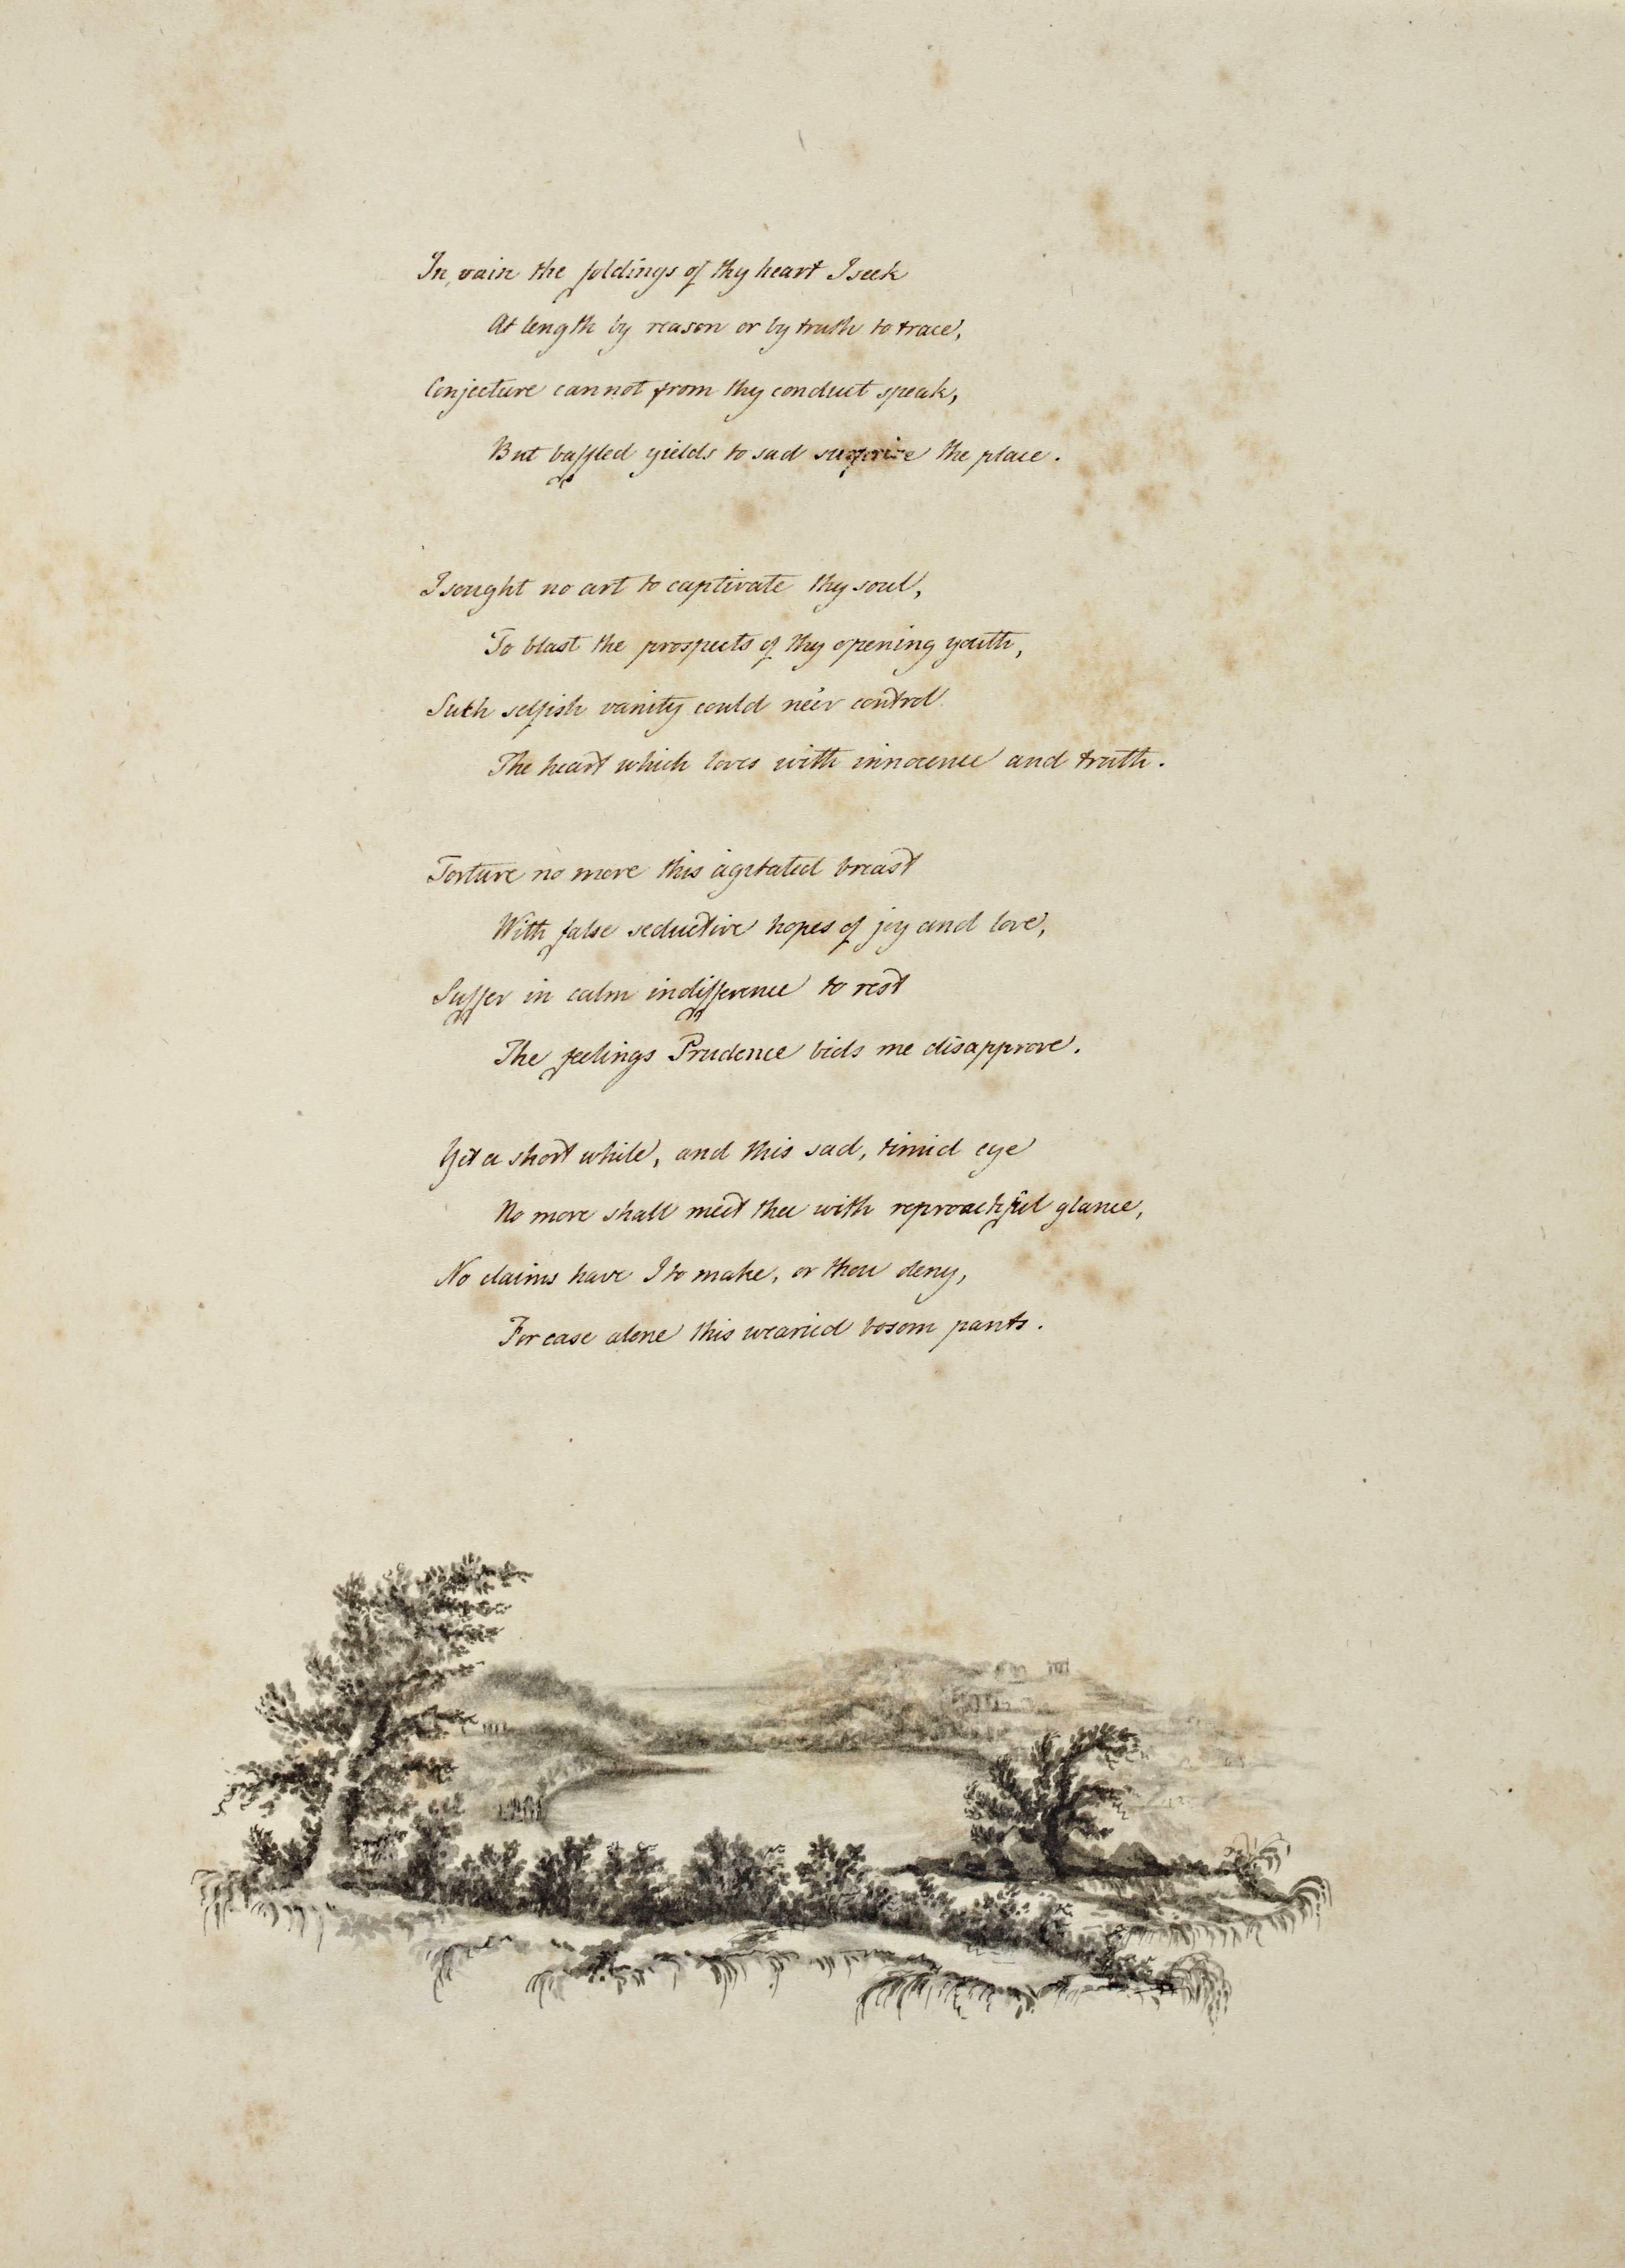 In vain the foldings of thy heart I seek
At length by reason or by truth to trace,
Conjecture cannot from thy conduct speak,
But baffled yields to sad surprise the place.
I sought no art to captivate thy soul,
To blast the prospects of thy opening youth,
Such selfish vanity could ne'er control
The heart which loves with innocence and truth.
Torture no more this agitated breast
With false seductive hopes of joy and love,
Suffer in calm indifference to rest
The feelings Prudence bids me disapprove.
Yet a short while, and this sad, timid eye
No more shall meet thee with reproachful glance,
No claims have I to make, or thou deny,
For ease alone this wearied bosom pants.